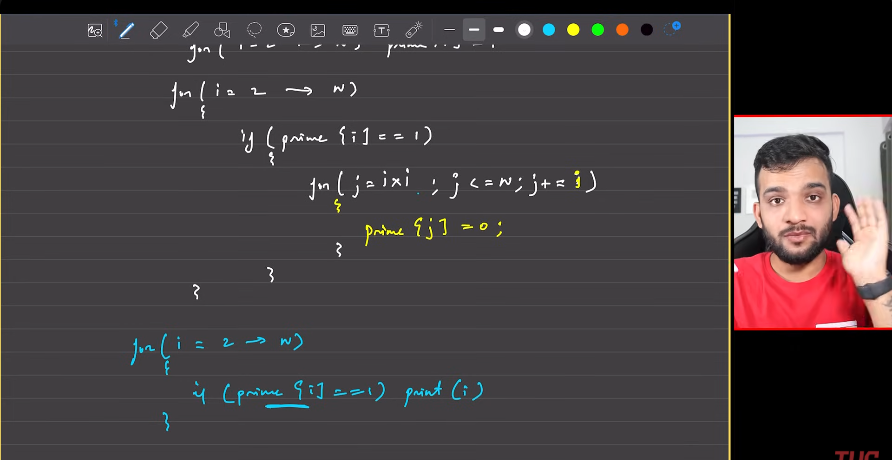 for( i = 2 → N) prime[i] = 1
for( i = 2 → N)
{
if (prime[i] == 1)
{
for( j = i×i ; j <= N; j += i)
{
prime[j] = 0;
}
}
}
for( i = 2 → N)
{
if (prime[i] == 1) print(i)
}
TUF